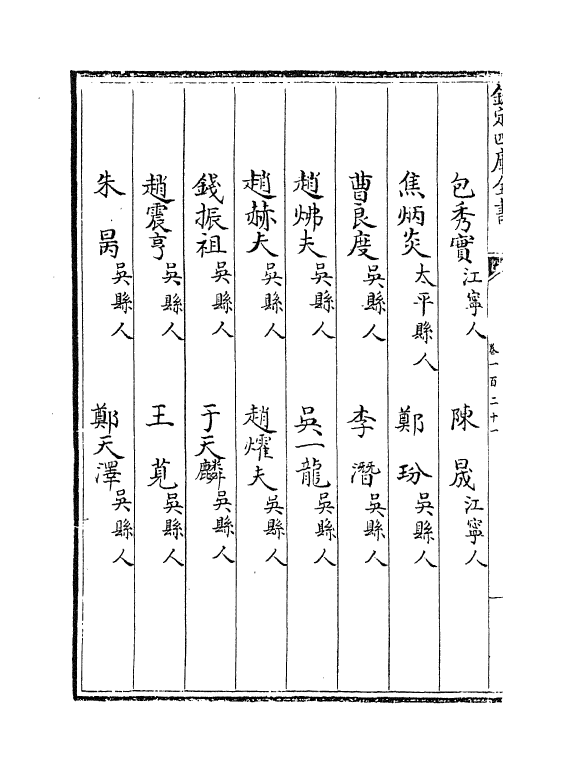 欽定四庫全書
卷一百二十一
包秀實江寧人　陳晟江寧人
焦炳炎太平縣人　鄭玢吳縣人
曹良度吳縣人　李潛吳縣人
趙炥夫吳縣人　吳一龍吳縣人
趙赫夫吳縣人　趙燿夫吳縣人
錢振祖吳縣人　于天麟吳縣人
趙震亨吳縣人　王莧吳縣人
朱昺吳縣人　鄭天澤吳縣人